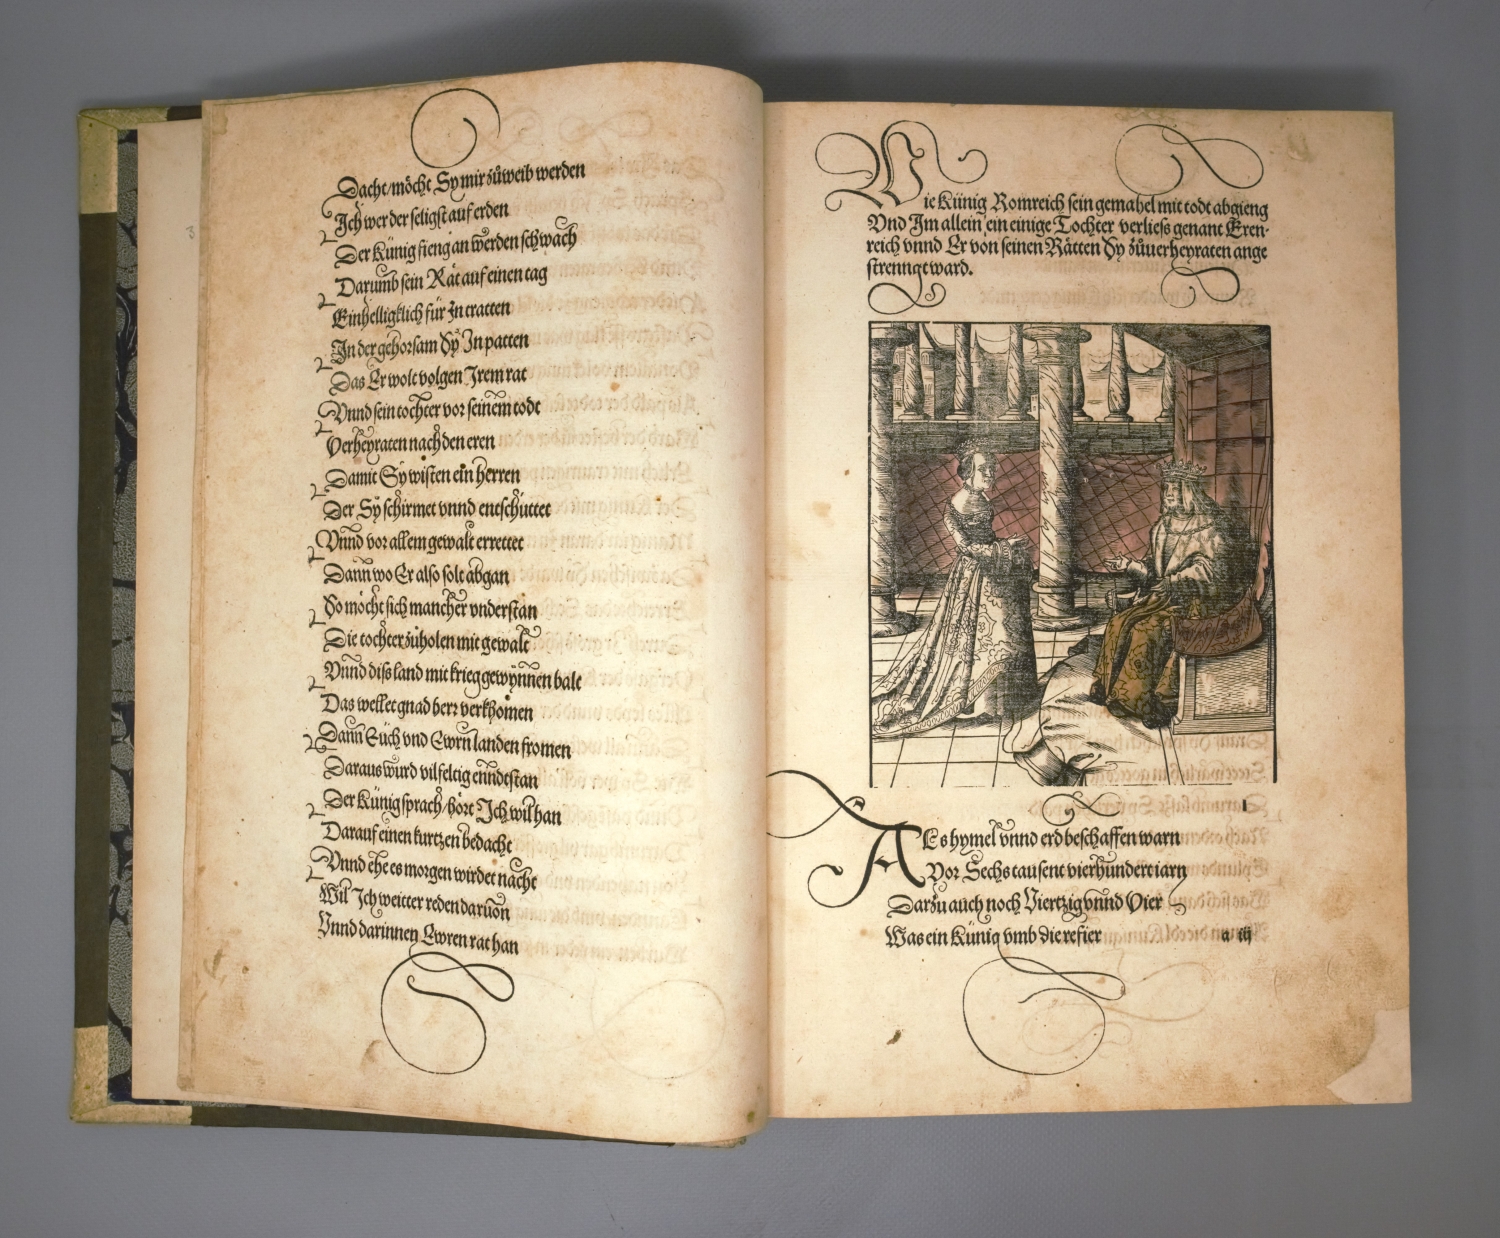 Dacht/möcht Sy mir zůweib werden
Ich wer der seligst auf erden
Der Künig fieng an werden schwach
Darumb sein Rät auf einen tag
Einhelligklich für In tratten
In der gehorsam Sy In patten
Das Er wolt volgen Irem rat
Vnnd sein tochter vor seinem todt
Verheyraten nach den eren
Damit Sy wisten ein herren
Der Sy schirmet vnnd entschüttet
Vnnd vor allem gewalt errettet
Dann wo Er also solt abgan
So möcht sich mancher vnderstan
Die tochter zůholen mit gewalt
Vnnd diss land mit krieg gewynnen balt
Das wellet gnad herr verkhomen
Dann Eüch vnd Ewrn landen fromen
Daraus wurd vilfeltig enndestan
Der Künig sprach/hört Ich wil han
Darauf einen kurtzen bedacht
Vnnd ehe es morgen wirdet nacht
Wil Ich weitter reden daruon
Vnnd darinnen Ewren rat han
Wie Künig Romreich sein gemahel mit todt abgieng
Vnd Im allein ein einige Tochter verliess genant Eren-
reich vnnd Er von seinen Rätten Sy zůuerheyraten ange
strennget ward.
1
ALs hymel vnnd erd beschaffen warn
Vor Sechs tausent vierhundert iarn
Darzů auch noch Viertzig vnnd Vier
Was ein Künig vmb die refier
a iij